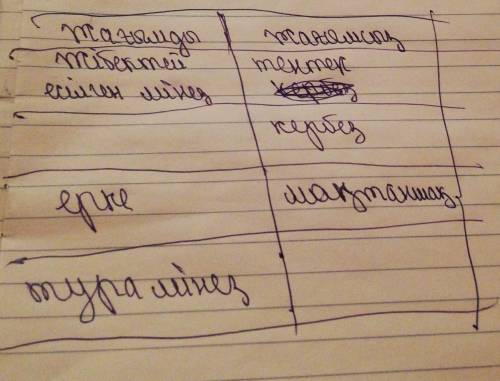 Жағымды Жағымсыз
Жібектей тентек
есілген мінез
кербез
ерке мақтаншақ
тура мінез